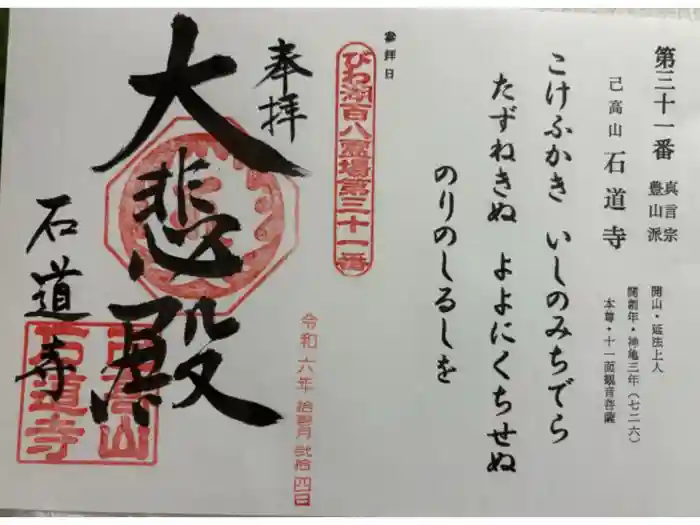 第三十一番
真言宗
豊山派
己高山 石道寺
開山・延法上人
開創年・神亀三年(七二六)
本尊・十一面観音菩薩
こけふかき いしのみちでら
たずねきぬ よよにくちせぬ
のりのしるしを
参拝日
びわ湖百八霊場第三十一番
令和六年 拾壱月 弐拾四日
奉拝
大悲殿
石道寺
己高山
石道寺